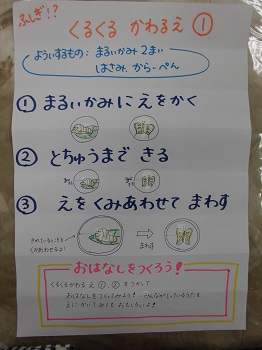 ふしぎ!?
くるくる かわるえ ①
よういするもの: まるいかみ 2まい
はさみ、からーぺん
① まるいかみに えをかく
② とちゅうまで きる
③ えを くみあわせて まわす
まわす
おはなしをつくろう!
くるくるかわる え ①、② を つかって
おはなしを つくってみよう! みんながしっているうたを
えに かいて みても おもしろいよ!